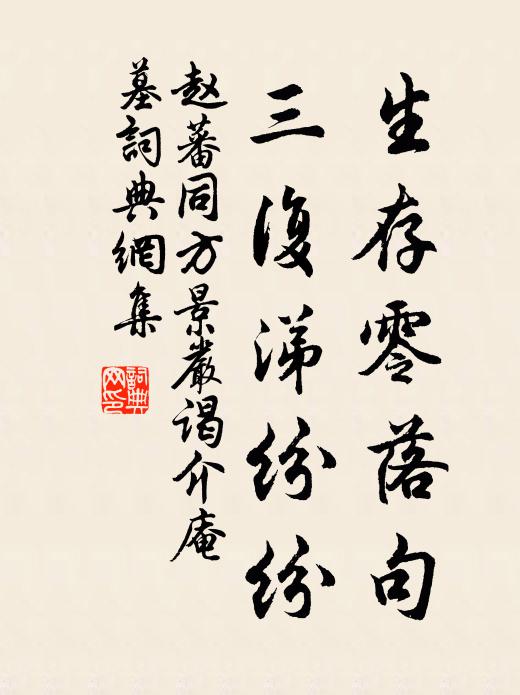 生存零落句
三復涕紛紛
赵蕃同方景嚴谒介庵
墓詞典網集
詞典
网印